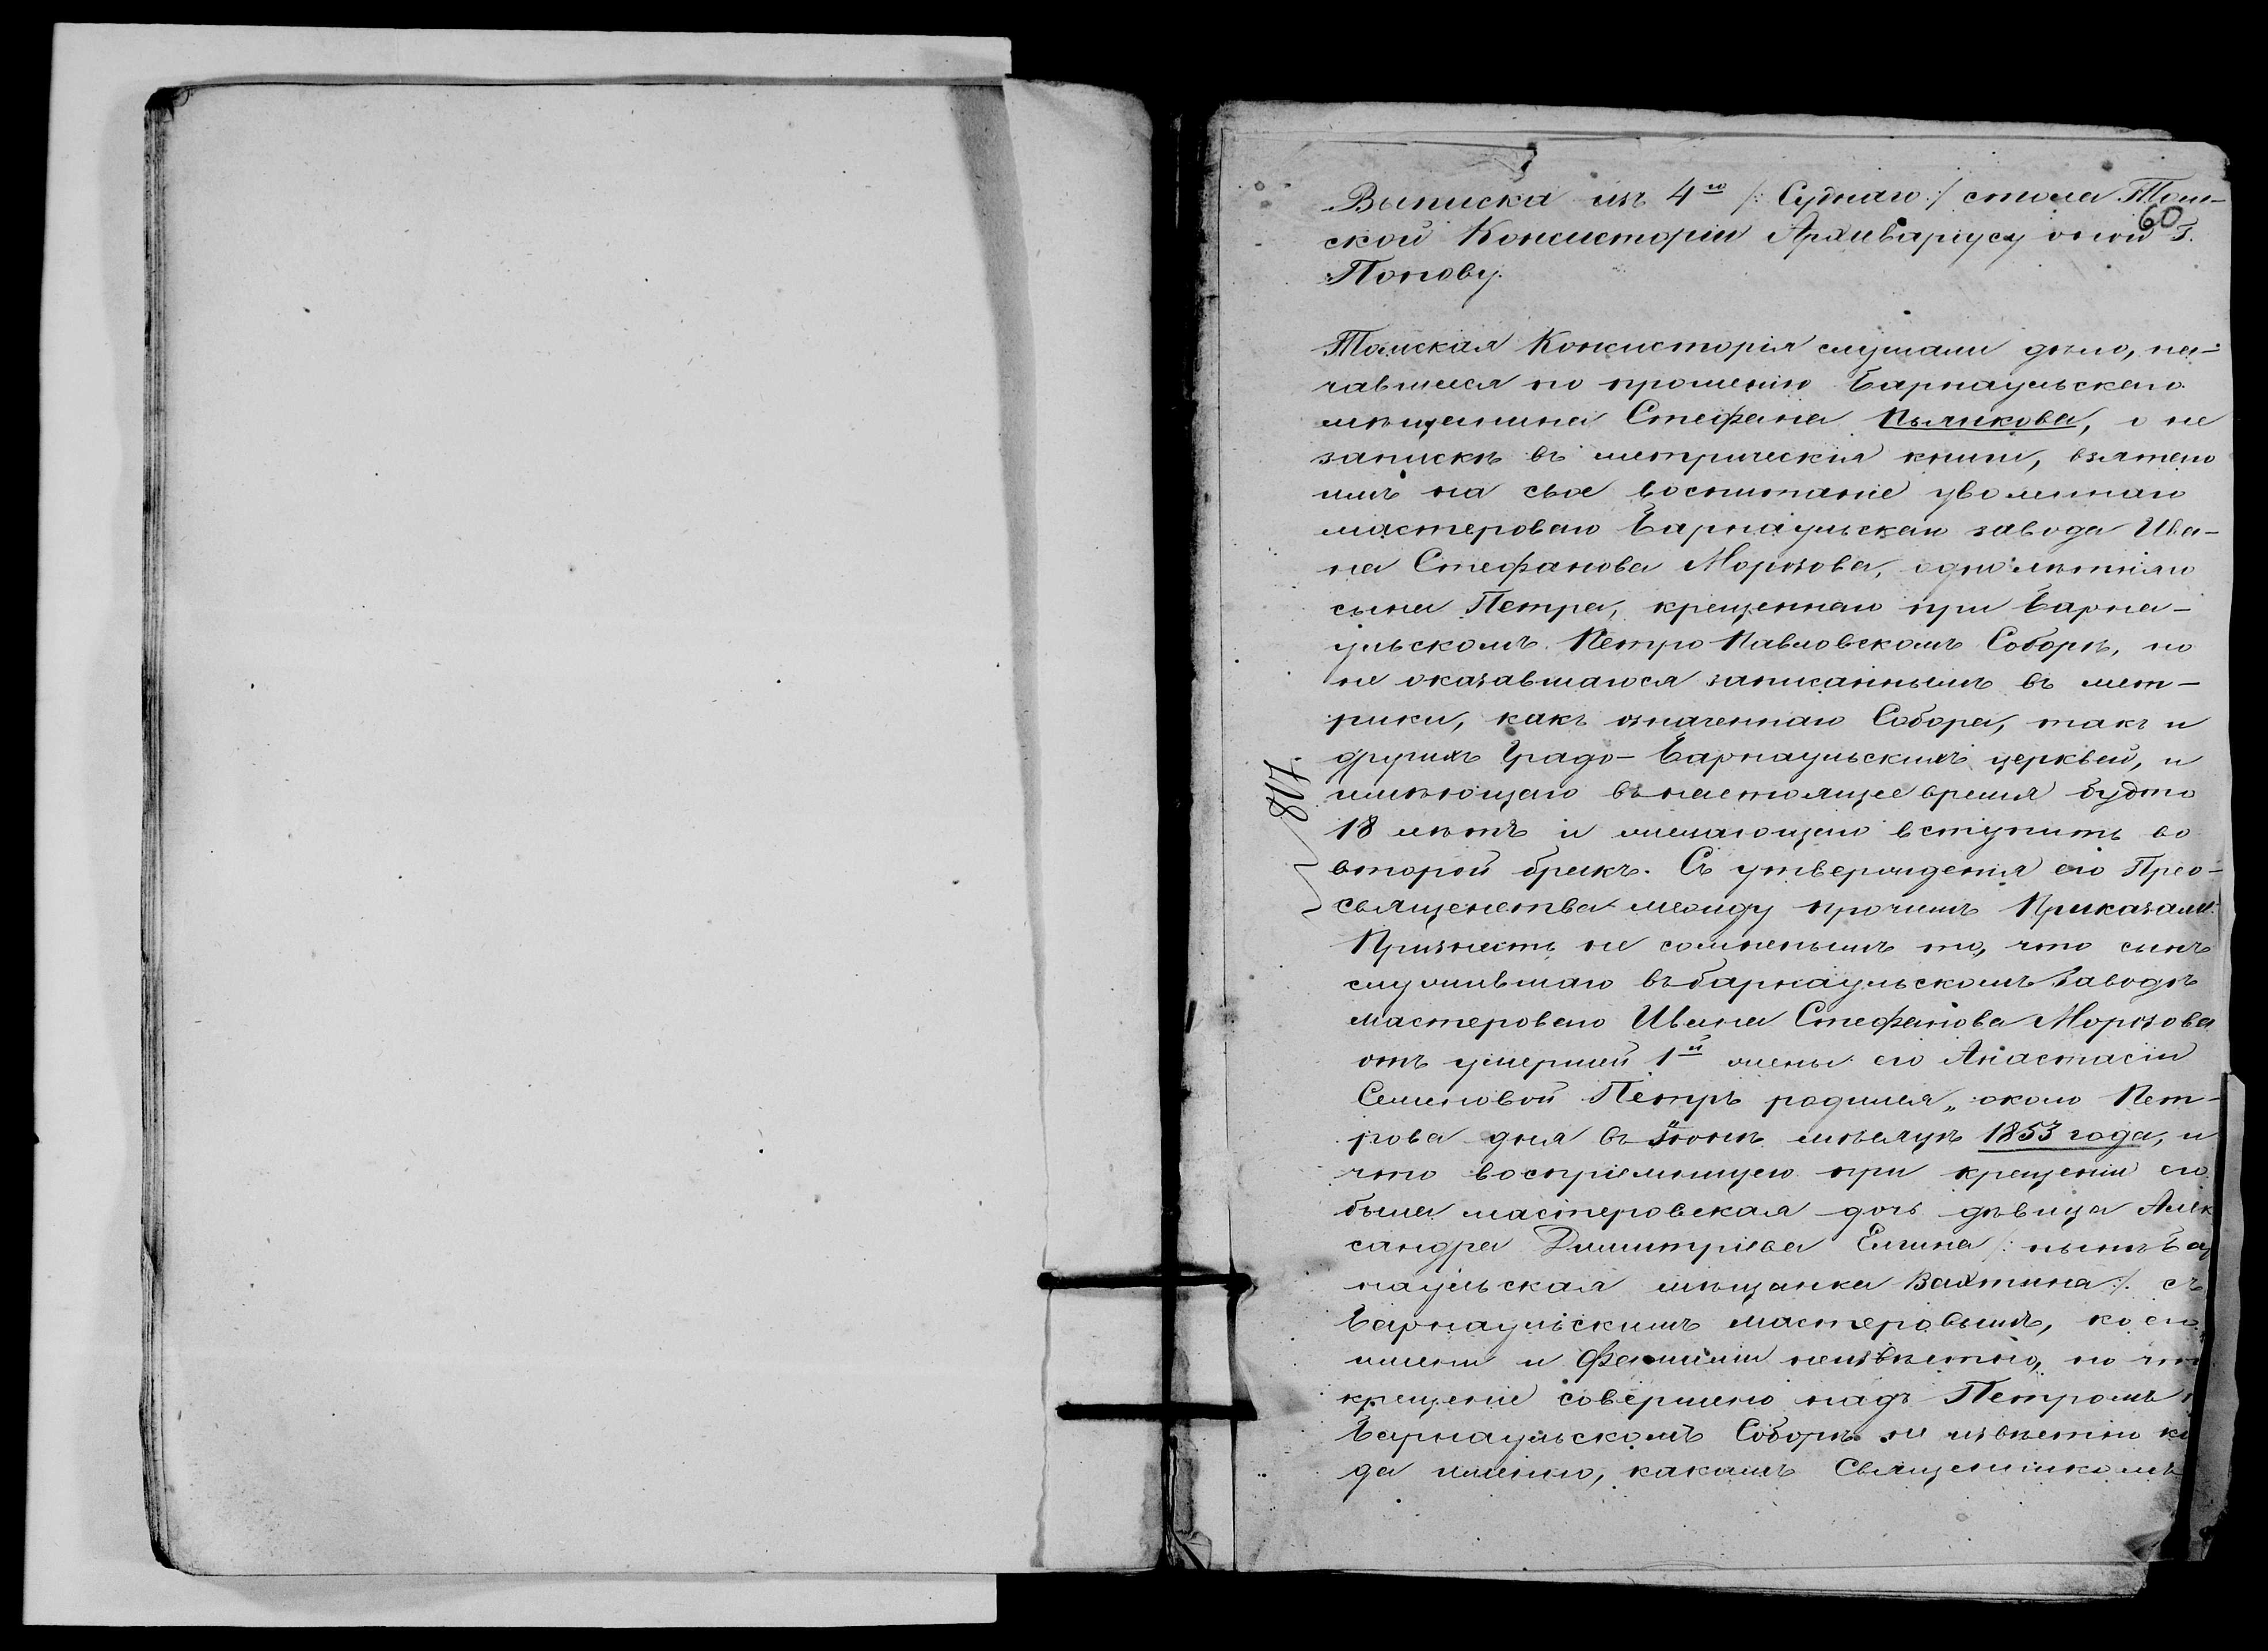 Выписка изъ 4го /: Суднаго :/ стола Том-
60
ской Консисторіи Архиваріусу оной Г.
Попову.
Томская Консисторія слушали дѣло, на-
чавшееся по прошенію Барнаульскаго
мѣщанина Стефана Пьянкова, о не
запискѣ въ метрическія книги, взятаго
имъ на свое воспитаніе уволеннаго
мастероваго Барнаульскаго завода Ива-
на Стефанова Морозова, однолѣтняго
сына Петра, крещеннаго при Барна-
ульскомъ Петро Павловскомъ Соборѣ, но
не оказавшагося записаннымъ въ мет-
рики, какъ означеннаго Собора, такъ и
другихъ Градо-Барнаульскихъ церквей, и
имѣющаго въ настоящее время будто
18 лѣтъ и желающаго вступить во
второй бракъ. Съ утвержденія его Прео-
священства между прочимъ Приказали:
Признать не сомненымъ то, что сынъ
служившаго въ барнаульскомъ заводѣ
мастероваго Ивана Стефанова Морозова
отъ умершей 1й жены его Анастасіи
Семеновой Петръ родился „около Пет-
рова дня въ Іюнѣ мѣсяцѣ 1853 года, и
что воспріемницею при крещеніи его
была мастеровская дочь дѣвица Алек
сандра Димитріева Елгина /: нынѣ Бар
наульская мѣщанка Вахтина :/ съ
Барнаульскимъ мастеровымъ, коего
имени и фамиліи неизвѣстно, но что
крещеніе совершено надъ Петромъ
Барнаульскомъ Соборѣ не извѣстно ко
да именно, какимъ Священникомъ